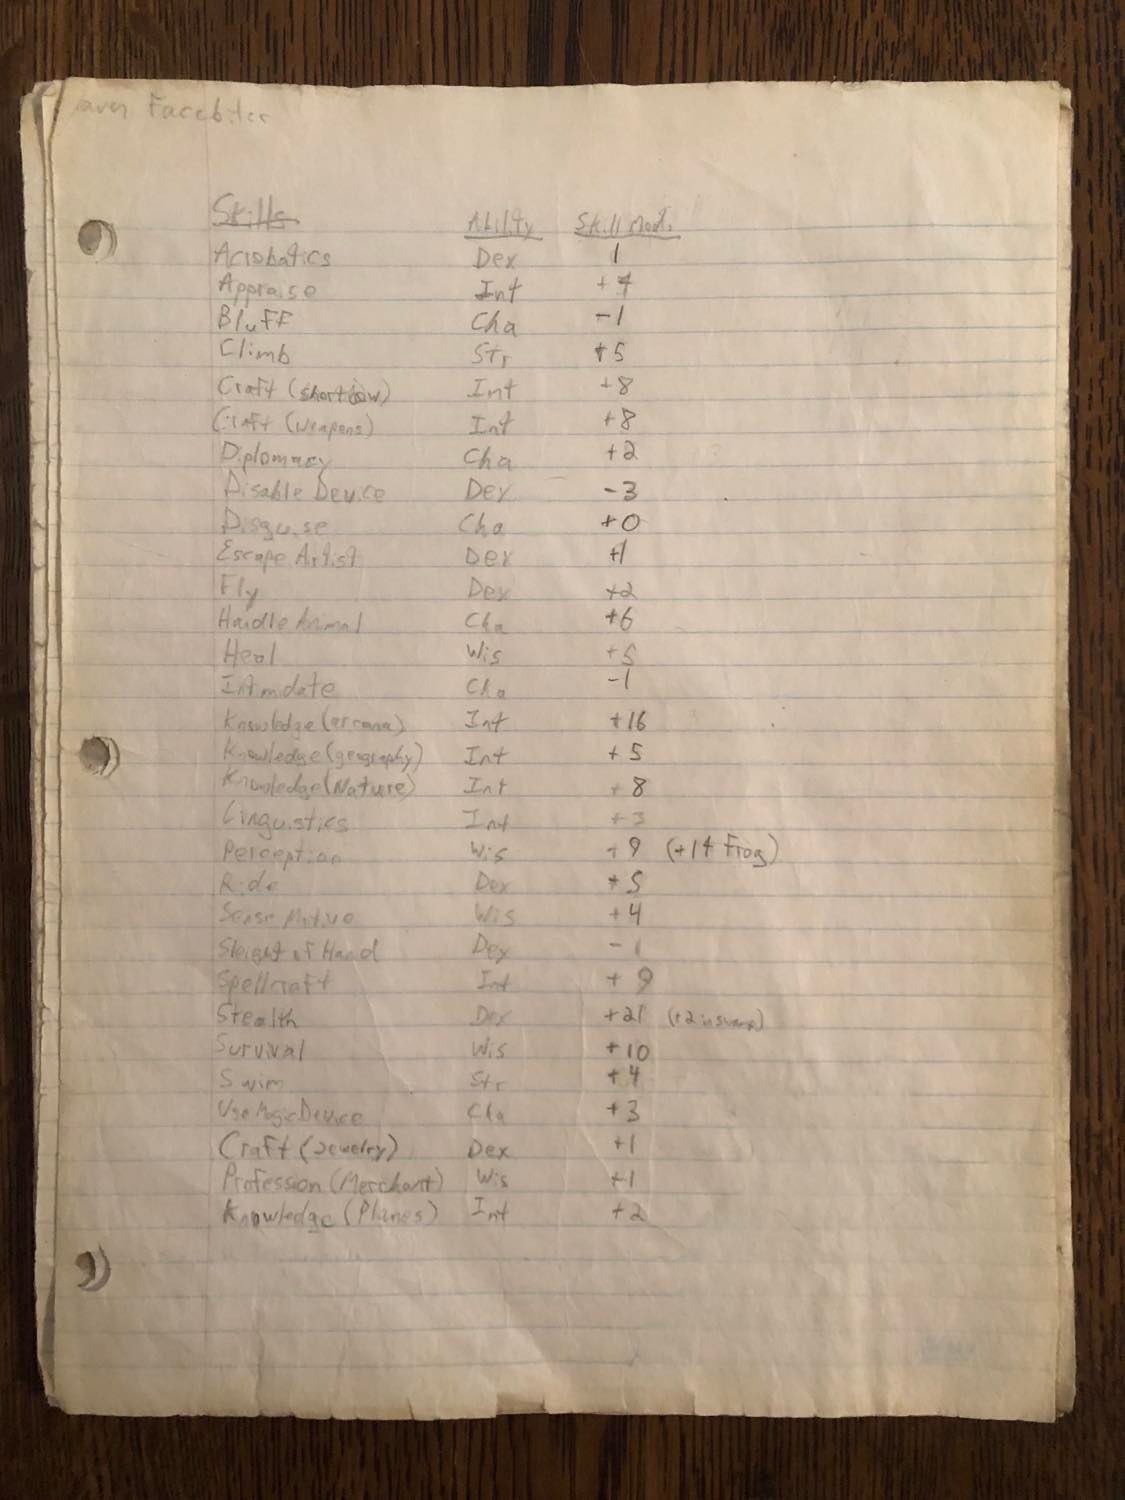 aven Facebiter
Skills Ability Skill Mod.
Acrobatics Dex 1
Appraise Int +7
Bluff Cha -1
Climb Str +5
Craft (shortbow) Int +8
Craft (weapons) Int +8
Diplomacy Cha +2
Disable Device Dex -3
Disguise Cha +0
Escape Artist Dex +1
Fly Dex +2
Handle Animal Cha +6
Heal Wis +5
Intimidate Cha -1
Knowledge (arcana) Int +16
Knowledge (geography) Int +5
Knowledge (Nature) Int +8
Linguistics Int +3
Perception Wis +9 (+14 Frog)
Ride Dex +5
Sense Motive Wis +4
Sleight of Hand Dex -1
Spellcraft Int +9
Stealth Dex +21 (+2 in swamp)
Survival Wis +10
Swim Str +4
Use Magic Device Cha +3
Craft (Jewelry) Dex +1
Profession (Merchant) Wis +1
Knowledge (Planes) Int +2